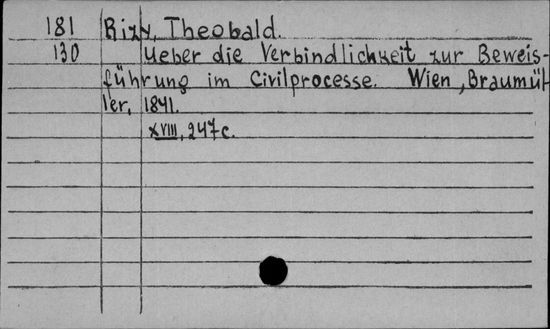 181 Rizy, Theobald.
130 Ueber die Verbindlichkeit zur Beweis-
führung im Civilprocesse. Wien, Braumül-
ler, 1841.
XVIII, 247 c.